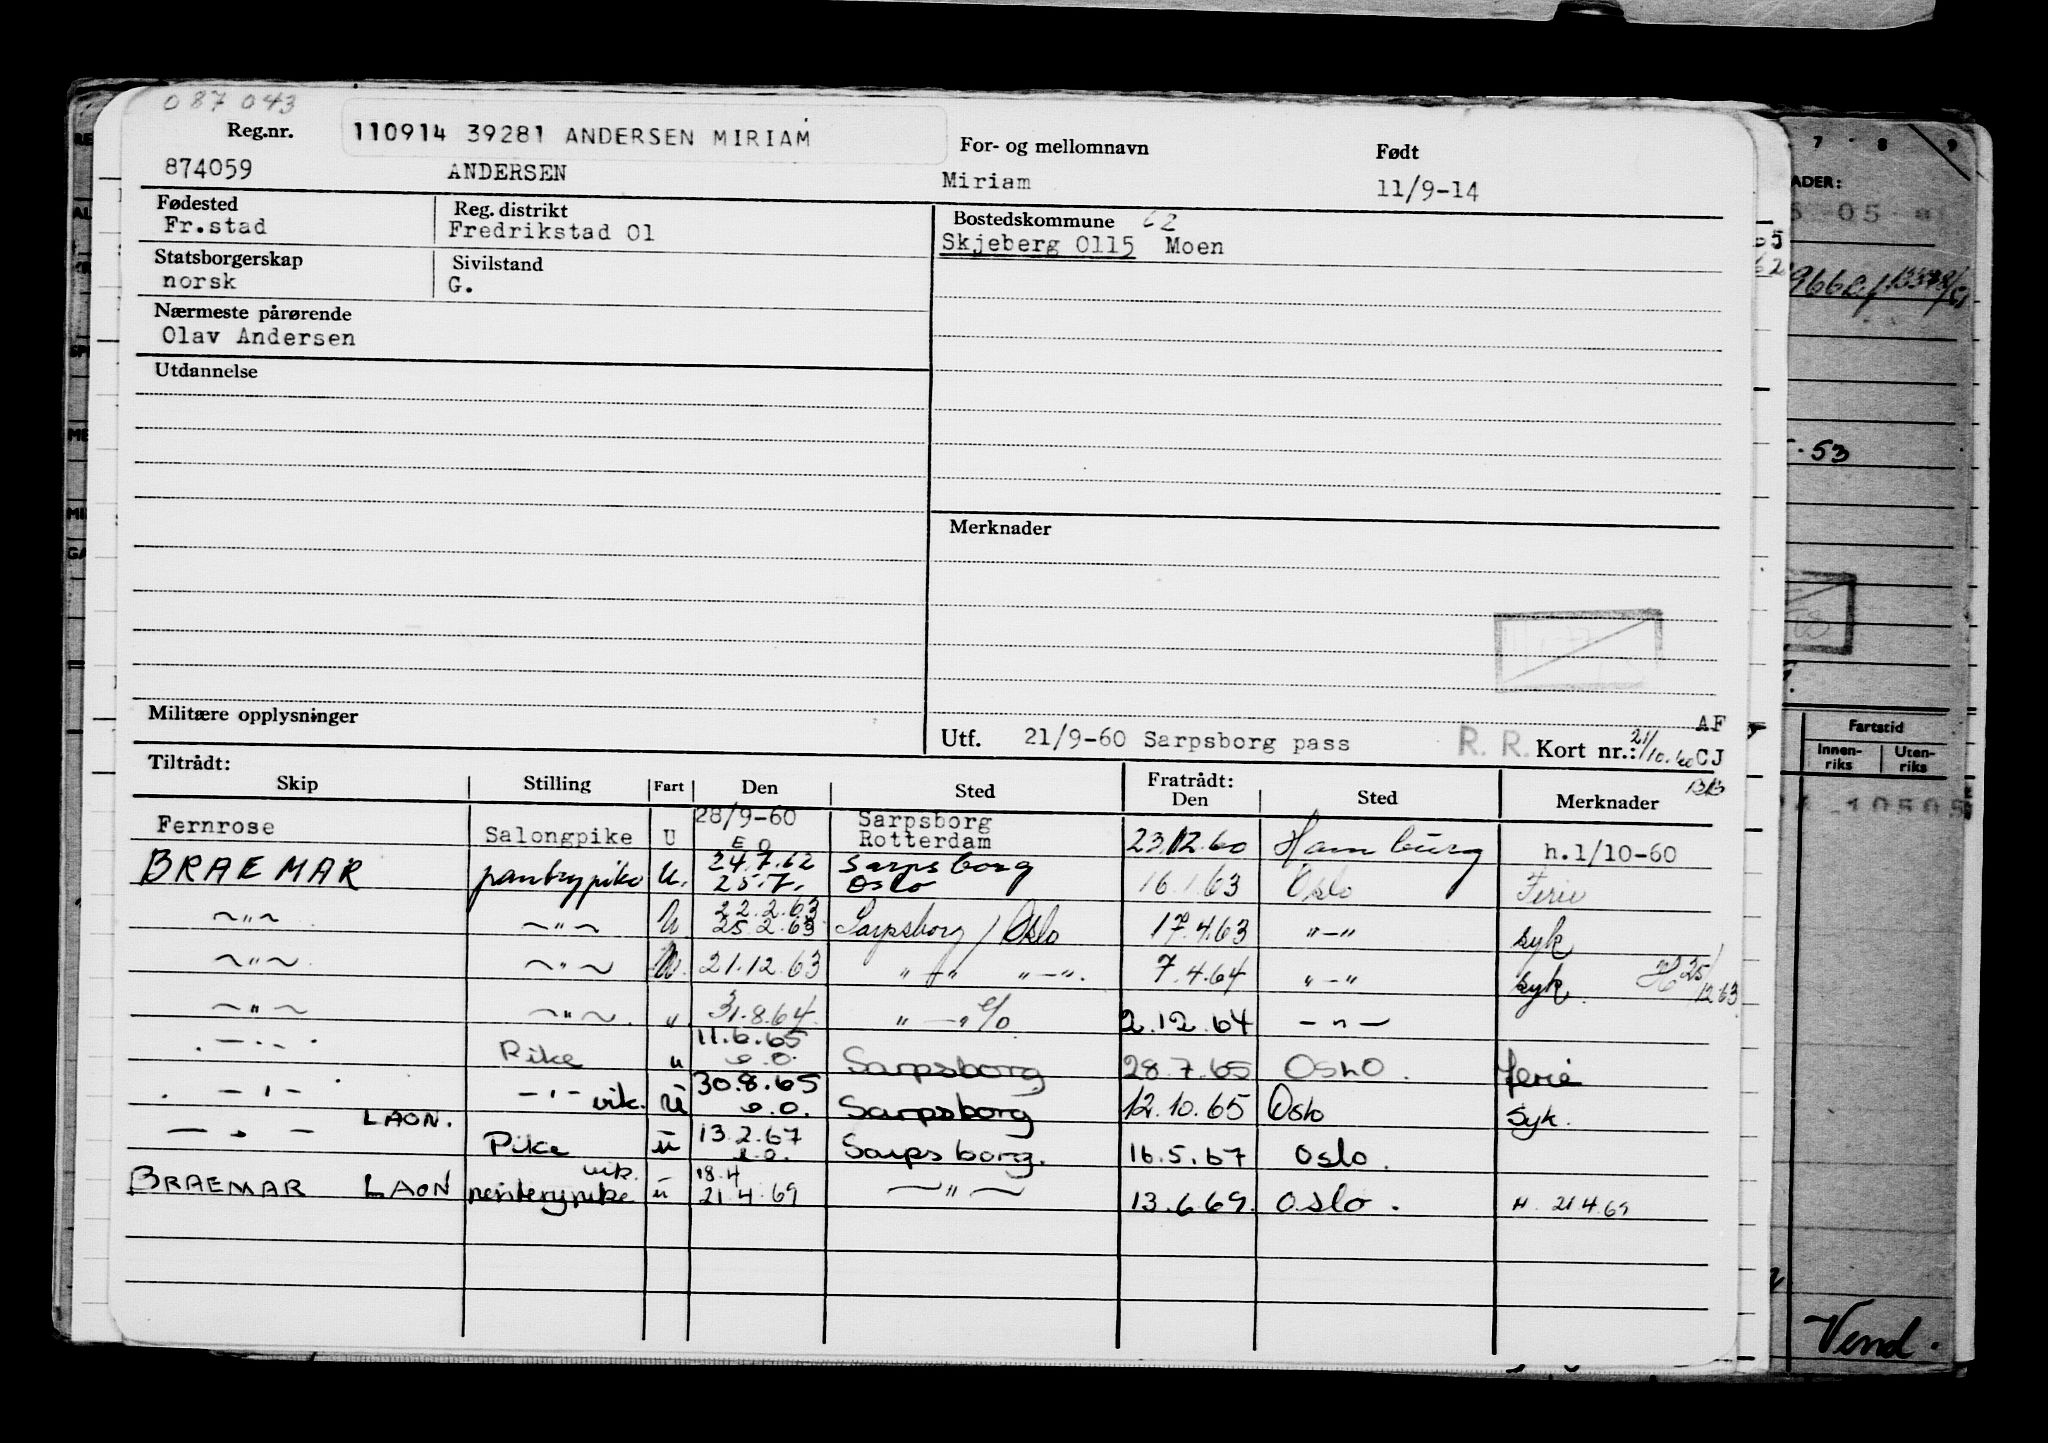 087043
Reg.nr. 110914 39281 ANDERSEN MIRIAM For- og mellomnavn Født
874059 ANDERSEN Miriam 11/9-14
Fødested Reg. distrikt Bostedskommune 62
Fr.stad Fredrikstad 01 Skjeberg 0115 Moen
Statsborgerskap Sivilstand
norsk G.
Nærmeste pårørende
Olav Andersen
Utdannelse
Merknader
Militære opplysninger AF
Utf. 21/9-60 Sarpsborg pass R. R. Kort nr.: 21/10.60 CJ
Tiltrådt: Fratrådt:
Skip Stilling Fart Den Sted Den Sted Merknader
28/9-60 Sarpsborg
Fernrose Salongpike U E O Rotterdam 23.12.60 Hamburg h.1/10-60
24.7.62 Sarpsborg
BRAEMAR pantrypike U. 25.7. Oslo 16.1.63 Oslo Ferie
22.2.63
~"~ ~"~ U 25 2.63 Sarpsborg / Oslo 17.4.63 "-" syk
~"~ ~"~ U. 21.12.63 "-" "-". 7.4.64 "-" syk. H 25/12 63
~"~ ~"~. ". 31.8.64 "-" e/o 2.12.64 -"-
11.6.65
-"- Pike u e.o. Sarpsborg 28.7.65 OSLO. ferie
30.8.65
-"- -"- vik. u e.o. Sarpsborg 12.10.65 Oslo Syk.
-"- LAON. Pike u 13.2.67 e.o. Sarpsborg. 16.5.67 Oslo.
vik. 18.4
BRAEMAR LAON u 21.4.69 ~"~ 13.6.69. Oslo. H. 21.4.69
7 8 9
ADER:
05
53
Fartstid
Innen-riks Uten-riks
10505
Vend.